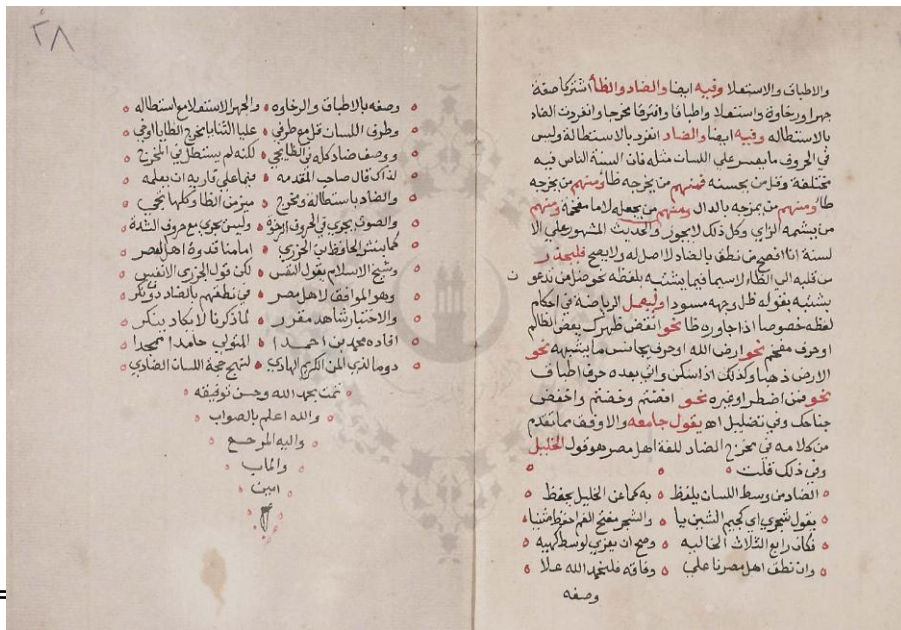 والاطباق والاستعلا وفيه ايضا والضاد والظا اشتركا صفة
جهرا ورخاوة واستعلا واطباقا وافترقا مخرجا وانفردت الضاد
بالاستطاله وفيه ايضا والضاد انفرد بالاستطالة وليس
في الحروف ما يعسر على اللسان مثله فان السنة الناس فيه
مختلفة وقل من يحسنه فمنهم من يخرجه ظا ومنهم من يخرجه
طا ومنهم من يمزجه بالدال ومنهم من يجعله لاما مفخمة ومنهم
من يشمه الزاي وكل ذلك لا يجوز والحديث المشهور على الا
لسنة انا افصح من نطق بالضاد لا اصل له ولا يصح فليحذر
من قلبه الي الظا لا سيما فيما يشتبه بلفظه نحو ضل من تدعو
يشتبه بقوله ظل وجهه مسودا وليعمل الرياضة في احكام
لفظه خصوصا اذا جاوره ظا نحو انقض ظهرك يعض الظالم
او حرف مفخم نحو ارض الله او حرف يجانس ما يشبهه نحو
الارض ذهبا وكذلك اذا سكن واتي بعده حرف اطباق
نحو فمن اضطر او غيره نحو افضتم وخضتم واخفض
جناحك وفي تضليل اهـ يقول جامعه والاوفق بما تقدم
من كلامه في مخرج الضاد للغة اهل مصر هو قول الخليل
وفي ذلك قلت
الضاد من وسط اللسان يلفظ به كما عن الخليل يحفظ
يقول شجري اي كجيم الشين يا والشجر مفتح الفم احفظ متنيا
فكان رابع الثلاث الخاليه وصح ان يعزي لوسط كهيه
وان نطق اهل مصرنا على وفاقه فلنحمد الله علا
وصفه
٢٨
وصفه بالاطباق والرخاوه والجهر الاستعلا مع استطاله
وطرف اللسان قل مع طرفي عليا الثنايا مخرج الظا يا وفي
ووصف ضاد كله في الظا يجي لكنه لم يستطل في المخرج
لذاك قال صاحب المقدمه فيما على قاريه ان يعلمه
والضاد باستطالة ومخرج ميز من الظا وكلها تجي
والصوت يجري في الحروف الرخوة وليس يجري مع حروف الشدة
كما بنشر الحافظ بن الجزري امامنا قدوة اهل العصر
وشيخ الاسلام يقول النفس لكن قول الجزري الانفس
وهو الموافق لاهل مصر في نطقهم بالضاد دون نكر
والاختبار شاهد مقرر لما ذكرنا لا يكاد ينكر
افاده محمد بن احمدا المتولي حامدا ممجدا
دوما لذي المن الكريم الهادي لنهج حجة اللسان الضادي
تمت بحمد الله وحسن توفيقه
والله اعلم بالصواب
واليه المرجع
والماب
امين